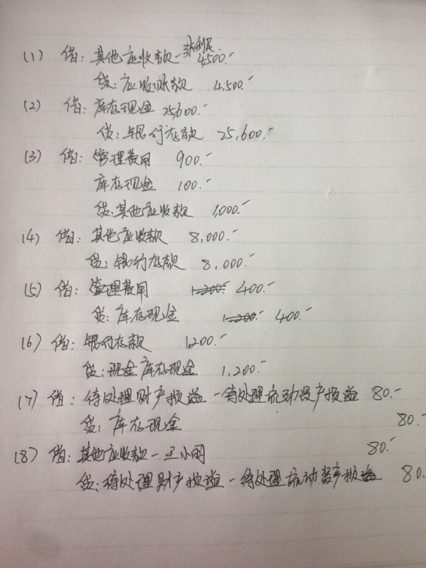 (1) 借: 其他应收款- 4500.-
贷: 应收账款 4,500.-
(2) 借: 库存现金 25600.-
贷: 银行存款 25,600.-
(3) 借: 管理费用 900.-
库存现金 100.-
贷: 其他应收款 1,000.-
(4) 借: 其他应收款 8,000.-
贷: 银行存款 8,000.-
(5) 借: 管理费用 1,200.- 400.-
贷: 库存现金 1,200.- 400.-
(6) 借: 银行存款 1,200.-
贷: 现金 库存现金 1,200.-
(7) 借: 待处理财产损益-待处理流动资产损益 80.-
贷: 库存现金 80.-
(8) 借: 其他应收款-王小刚 80.-
贷: 待处理财产损益-待处理流动资产损益 80.